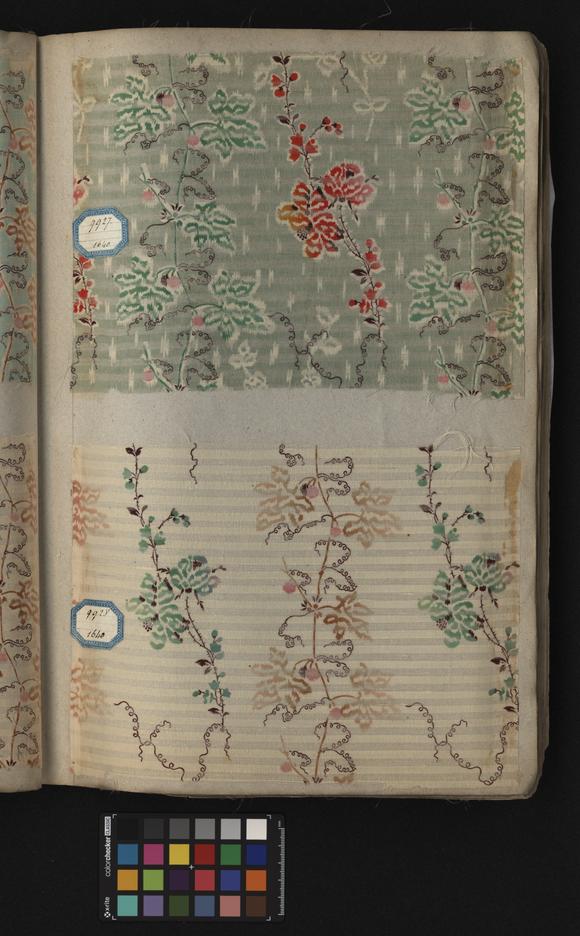 9927
1640
9928
1640
x-rite
colorchecker CLASSIC